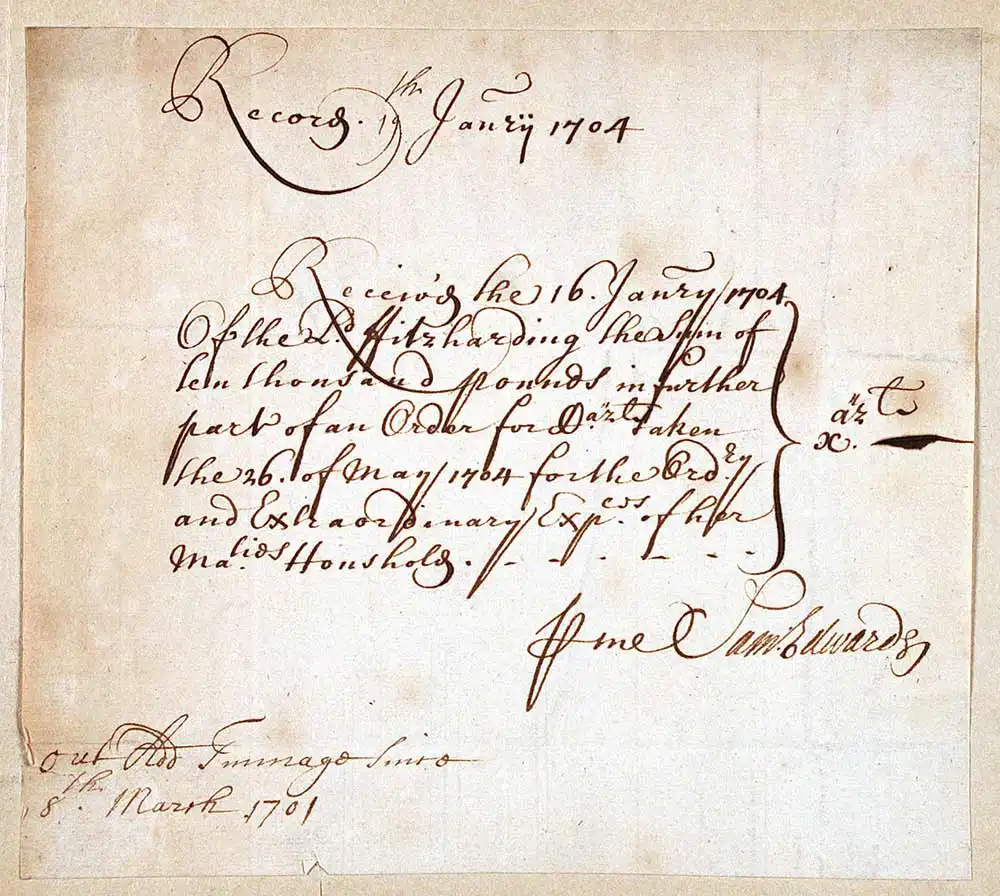 Record. 19th Janry 1704
Receiv'd the 16. Janry 1704
Of the Ld. Fitzharding the Sum of
ten thousand pounds in further
part of an Order for
the 26. of May 1704 for the Ordry
and Extraordinary Expces. of her
Maties Houshold. - - - - - -
x.
pme Sam: Edwards
out Add Tunnage Since
8th. March 1701